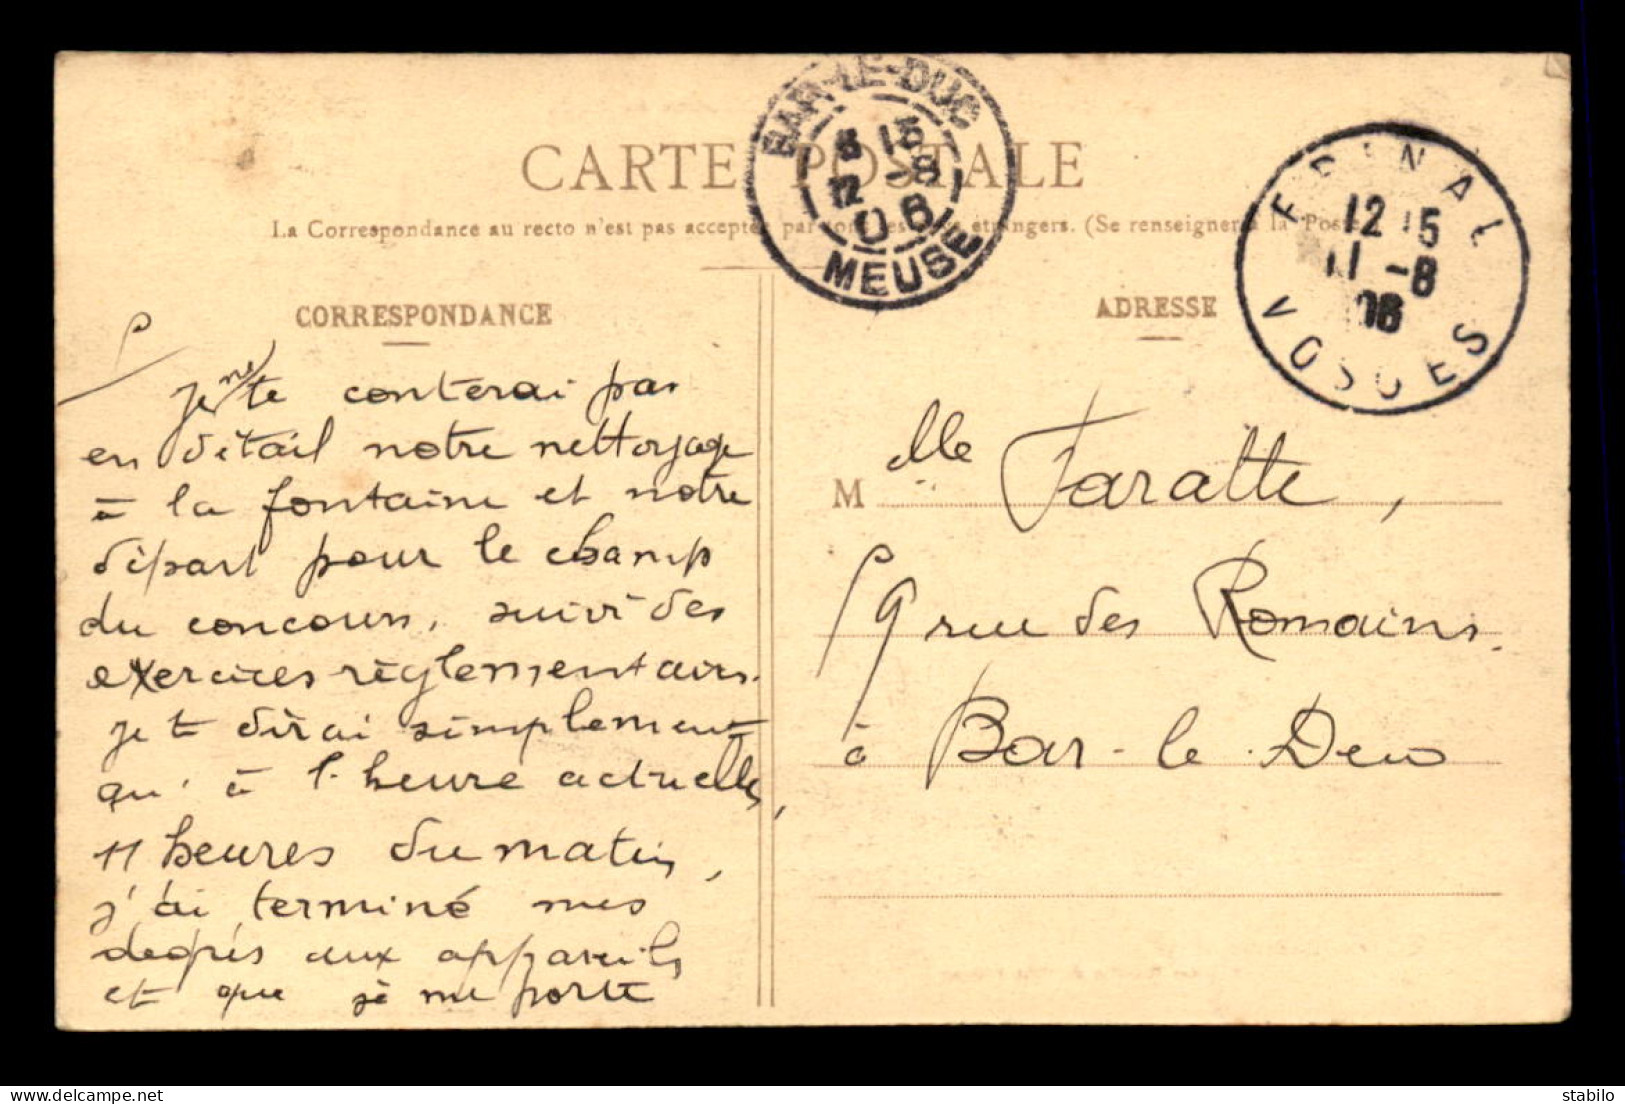 CARTE POSTALE
La Correspondance au recto n'est pas acceptée par tous les pays étrangers. (Se renseigner à la Poste)
BAR-LE-DUC
8 15
12 -8
06
MEUSE
EPINAL
12 15
11 -8
06
VOSGES
CORRESPONDANCE
Je ne te conterai pas
en détail notre nettoyage
à la fontaine et notre
départ pour le champ
du concours, suivi des
exercices règlementaires.
je te dirai simplement
qu'à l'heure actuelle,
11 heures du matin,
j'ai terminé mes
degrés aux appareils
et que je me porte
ADRESSE
M lle Faratte,
9 rue des Romains.
à Bar-le-Duc
delcampe.net
stabilo